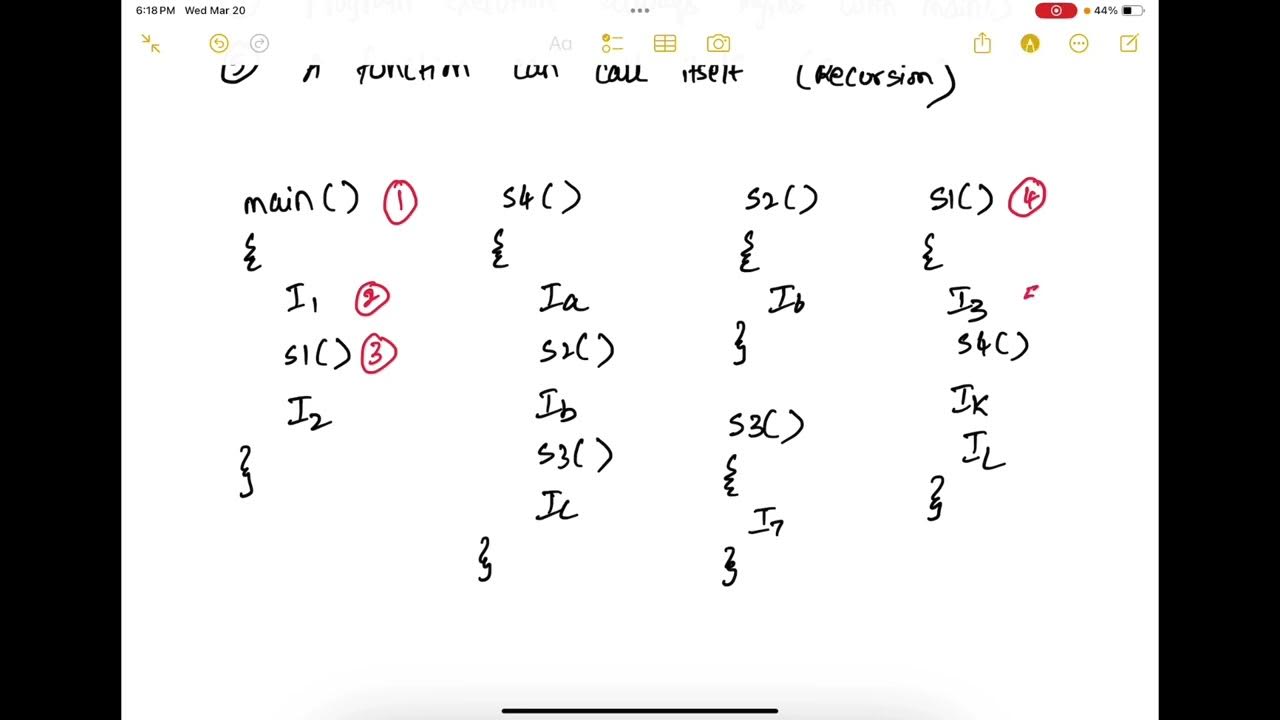 6:18 PM Wed Mar 20
44%
Aa
A function can call itself (Recursion)
main() 1
{
I1 2
s1() 3
I2
}
s4()
{
Ia
s2()
Ib
s3()
Ic
}
s2()
{
I6
}
s3()
{
I7
}
s1() 4
{
I3
s4()
IK
IL
}